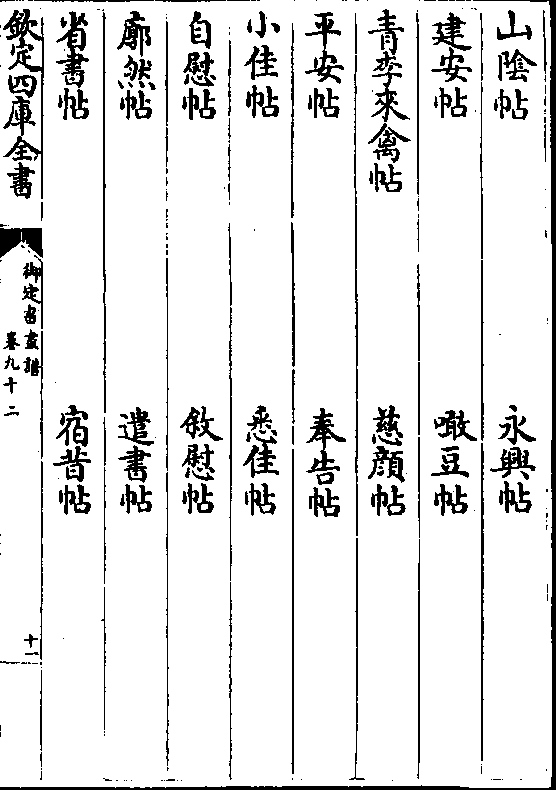 山陰帖　永興帖
建安帖　噉豆帖
青李來禽帖　慈顔帖
平安帖　奉告帖
小佳帖　悉佳帖
自慰帖　敘慰帖
廓然帖　遣書帖
省書帖　宿昔帖
欽定四庫全書　御定書畫譜　卷九十二　十一